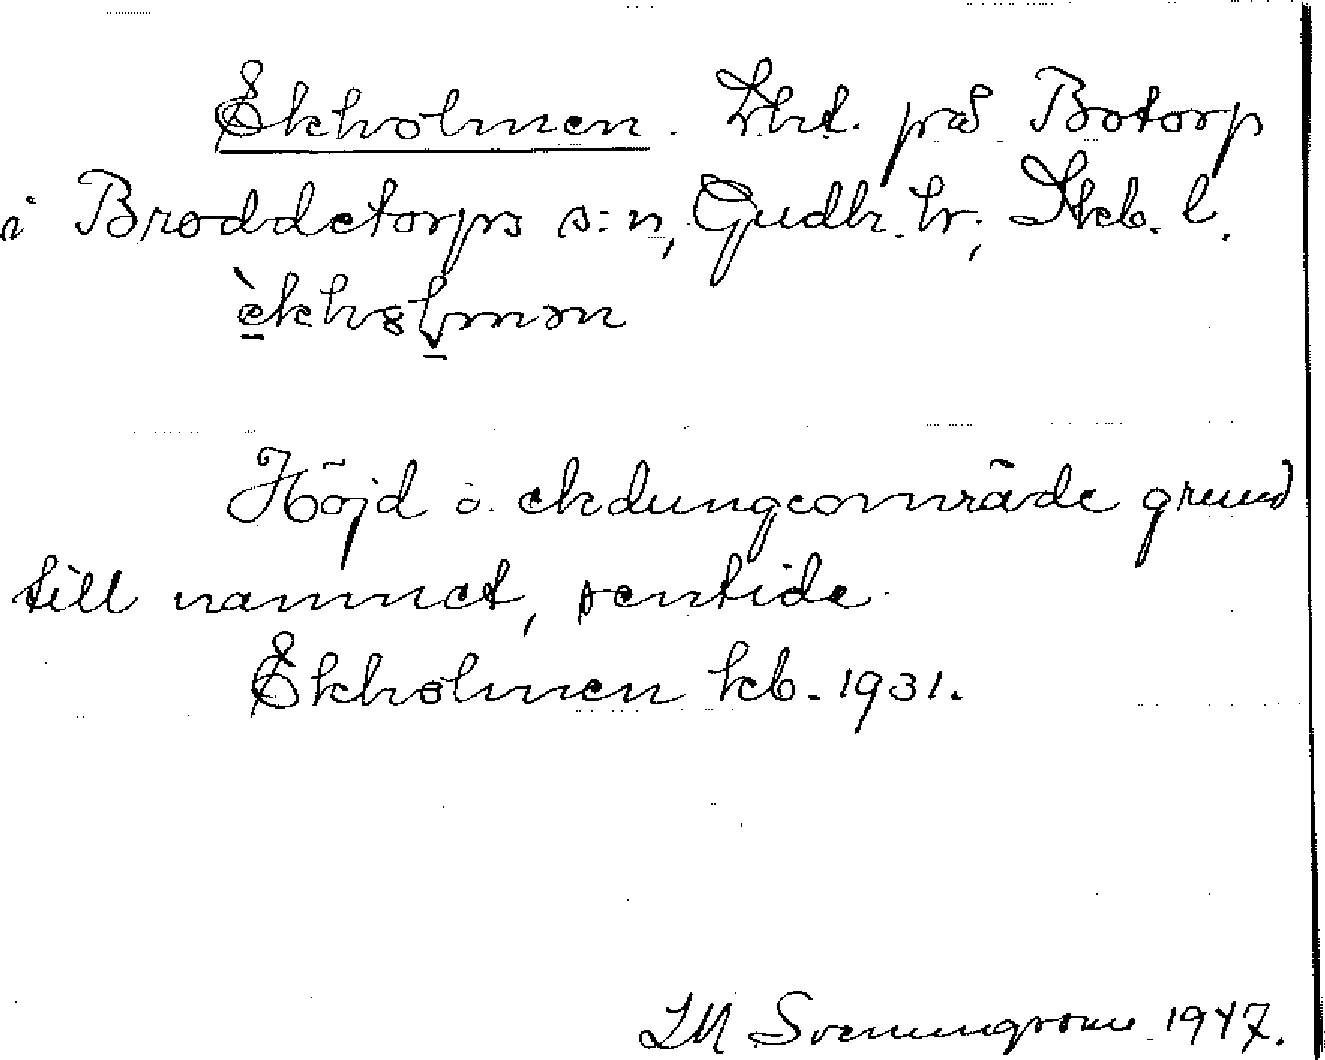 Ekholmen. Lht. på Botorp
i Broddetorps s:n, Gudh. hr; Skb. l.
èkhɷlmən
Höjd o. ekdungeområde grund
till namnet, sentida.
Ekholmen kb. 1931.
S. M. Svenungsson 1947.